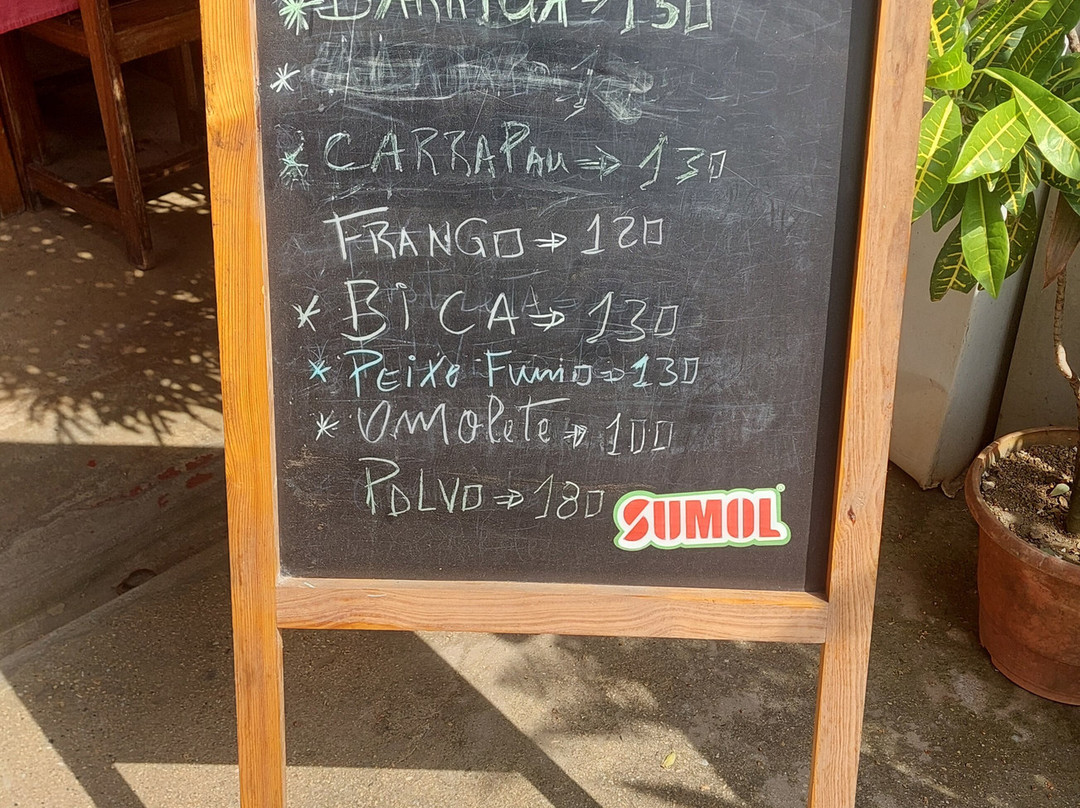 * BARRIGA => 130
*
* CARRAPAU => 130
FRANGO => 120
* BiCA => 130
* PEiXe Fumo => 130
* OMOLeTe => 100
POLVO => 180
SUMOL®